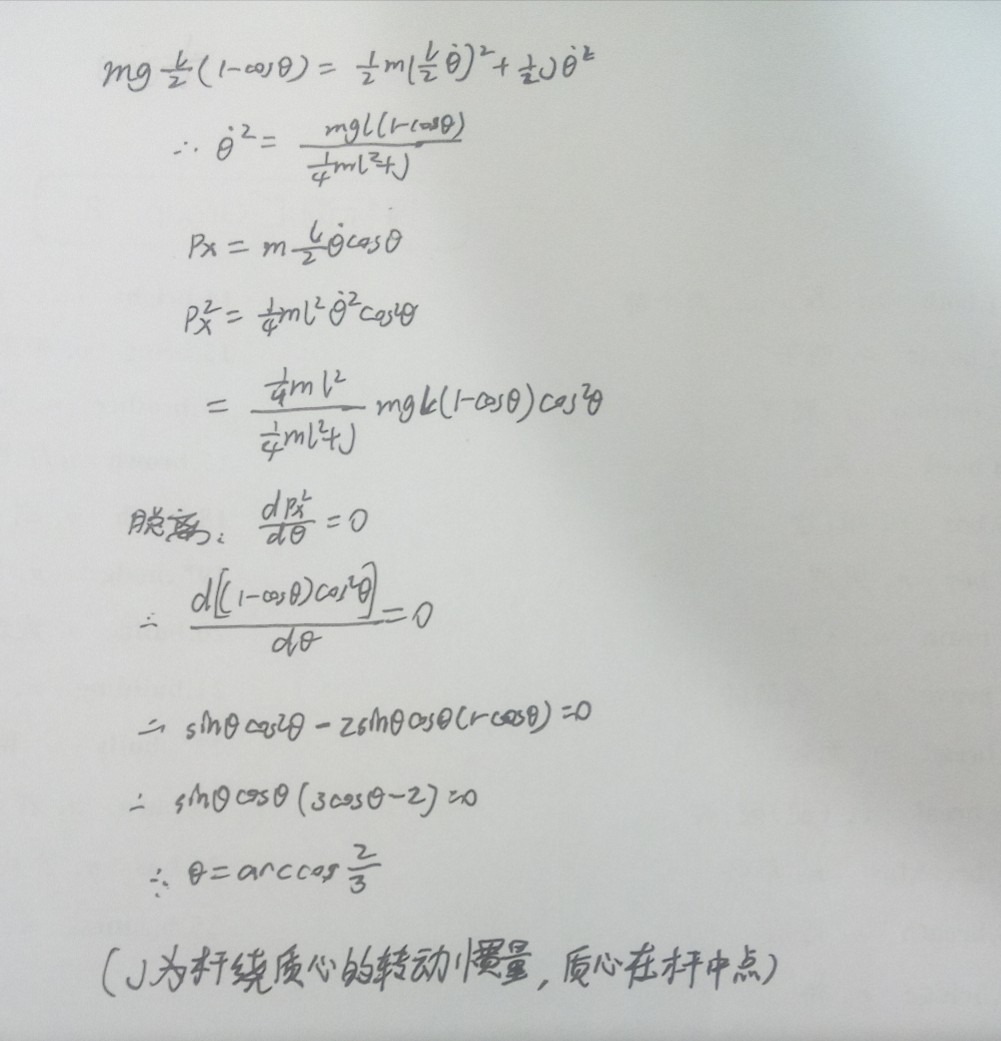 mg l/2 (1-cosθ) = 1/2 m(l/2 θ̇)² + 1/2 J θ̇²
∴ θ̇² = mgl(1-cosθ) / (1/4 ml²+J)
Px = m l/2 θ̇ cosθ
Px² = 1/4 ml² θ̇² cos²θ
= (1/4 ml²) / (1/4 ml²+J) mgl(1-cosθ)cos²θ
脱离: dPx²/dθ = 0
∴ d[(1-cosθ)cos²θ]/dθ = 0
∴ sinθcos²θ - 2sinθcosθ(1-cosθ)=0
∴ sinθcosθ(3cosθ-2)=0
∴ θ = arccos 2/3
(J为杆绕质心的转动惯量, 质心在杆中点)